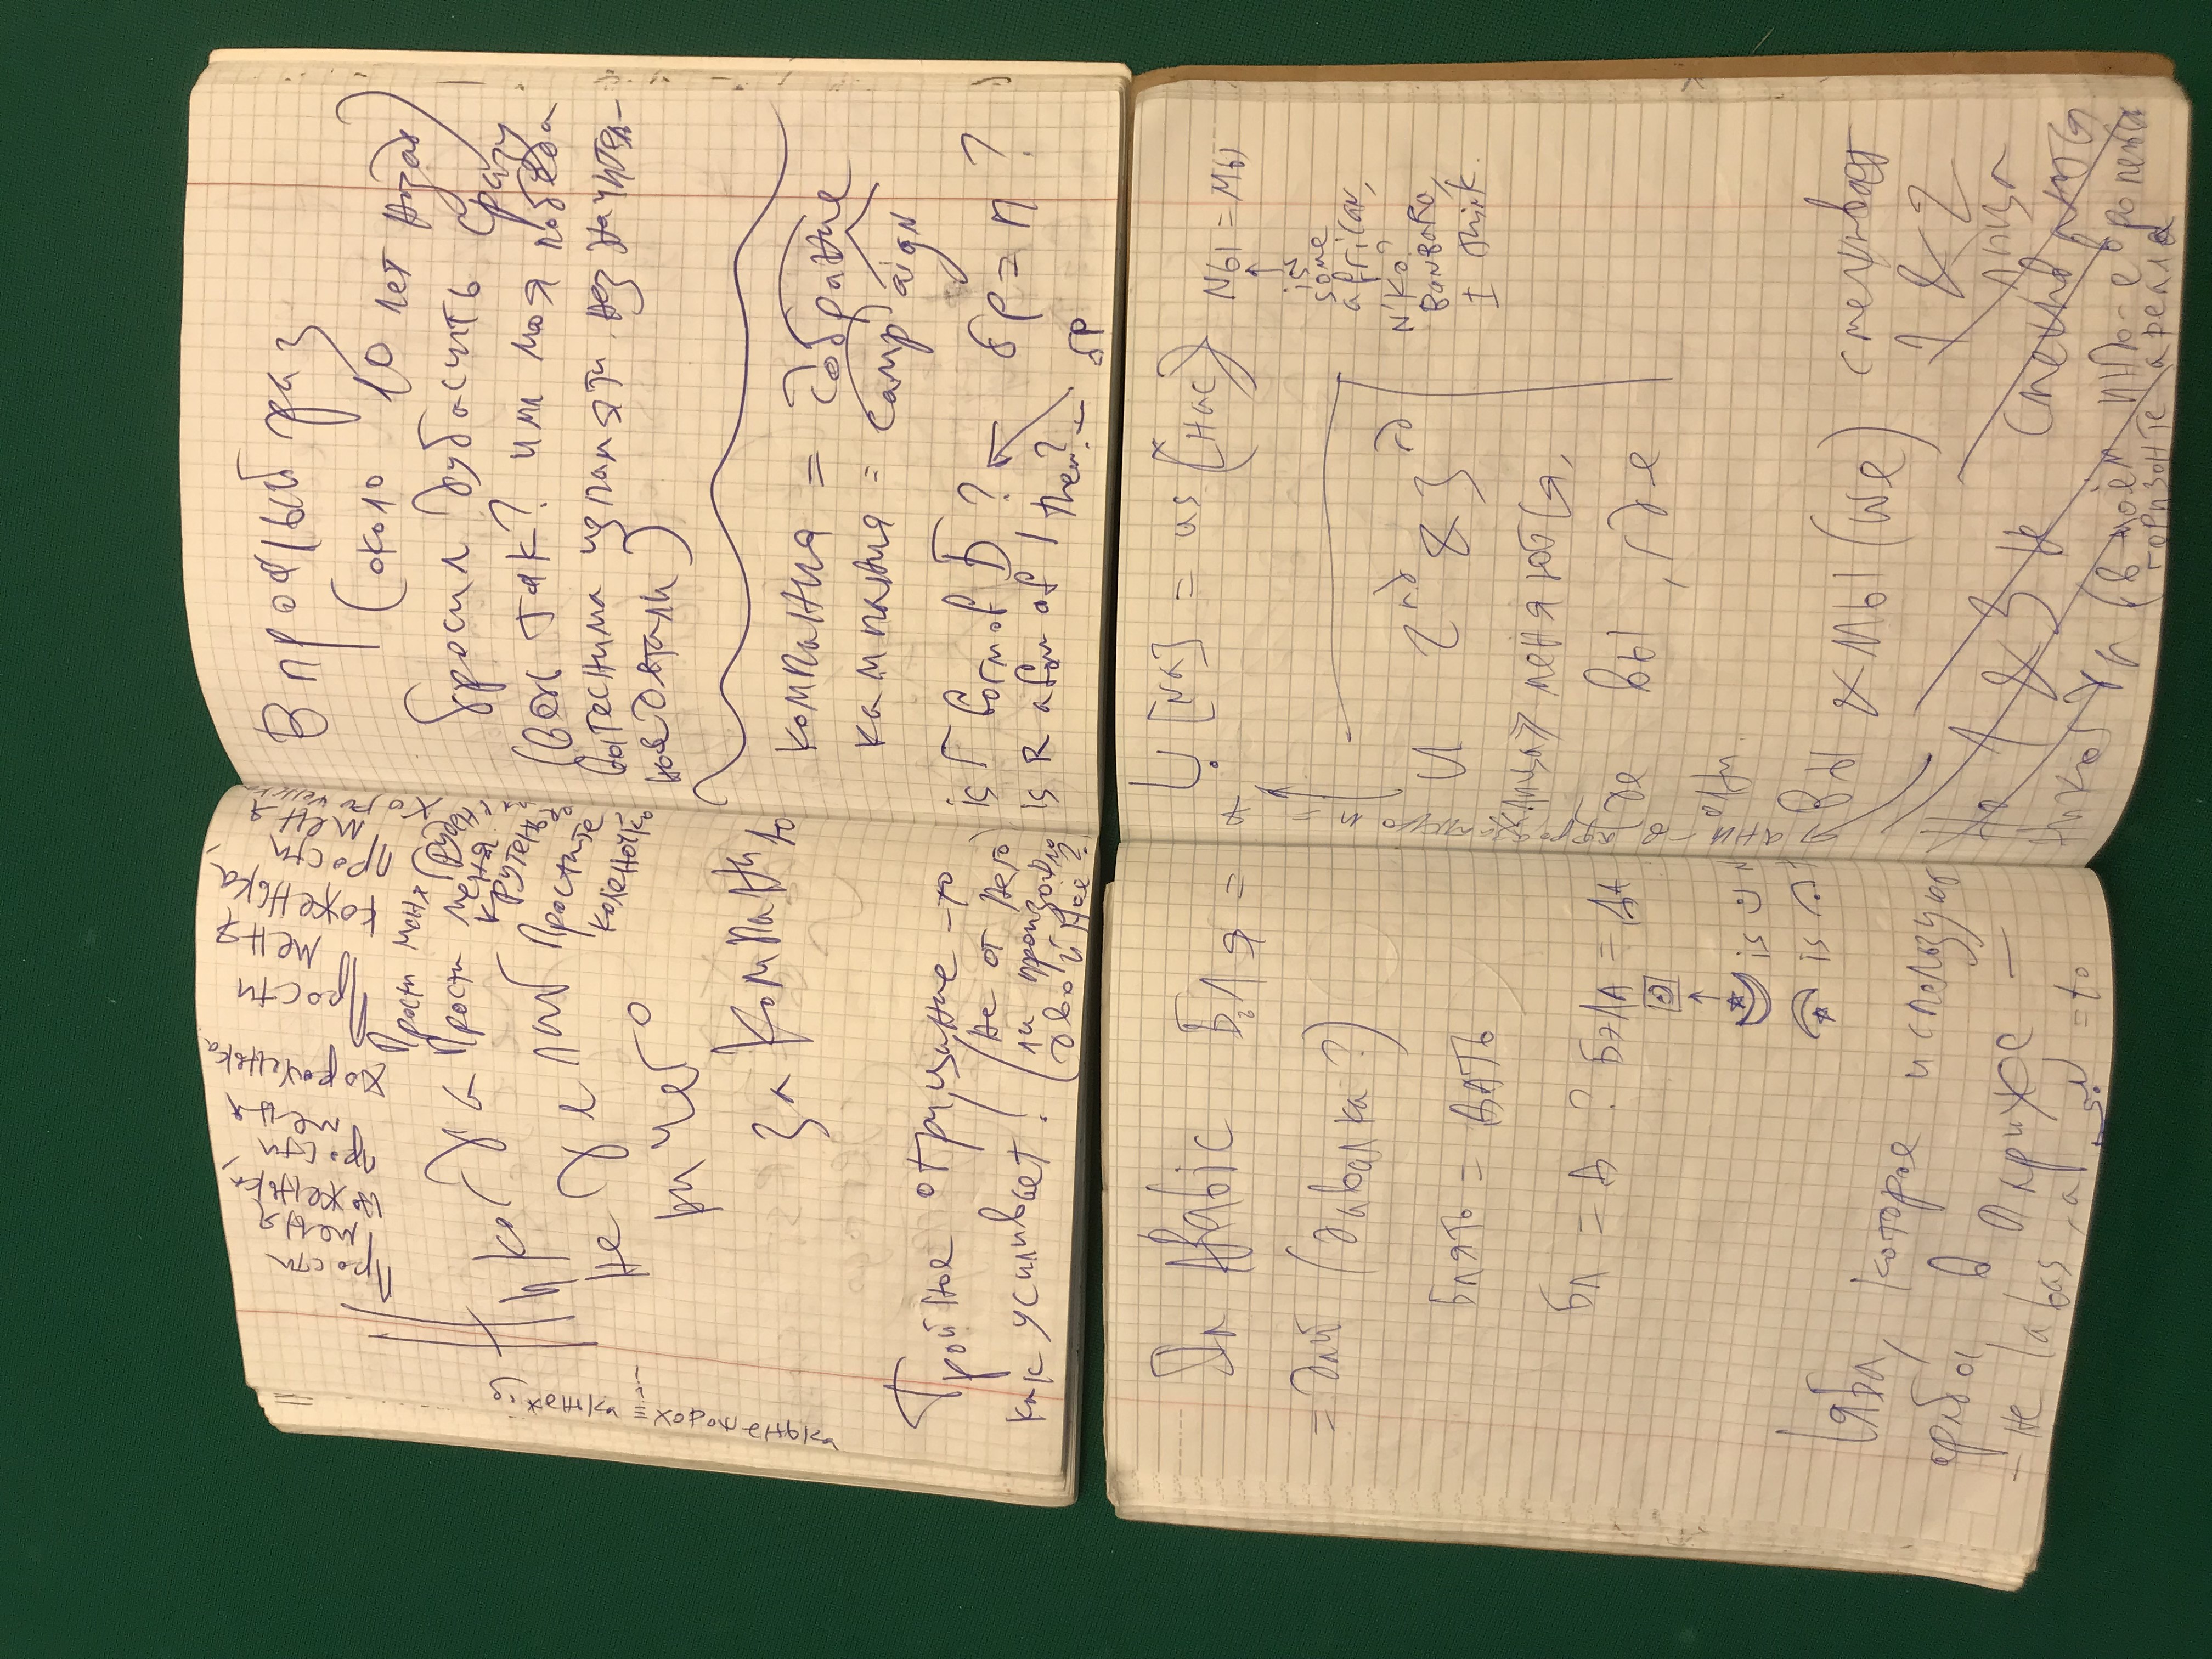 Прости
меня
коженька,
прости
меня
хорошенька
Прости
меня
коженька,
прости
меня
Прости меня
Прости меня
крутень
Простите
коленочко
Никогда
не делай
ничего
за компанию
Тройное отрицание -то
как усиливает! (не от него
ли произошло
двойное?
В прошлый раз
(около 10 лет назад)
бросил дубасить сразу
(ведь так? или моя победа
вытеснима из памяти незначитель-
ное детали)
компания = собрание
кампания = campaign
is Г form of Б? бр = п ?
is R a form of Г then? бр
In Arabic Бля =
= дай (давалка?)
Блять = дать
Бл = д ? БэлА = дА
is
is
ляба, которое используют
арабы в Париже –
– не labas, а = то
[na] = us (нас)
Nы = мы
is
some
african,
N'Ko?
BanBaRa,
I think.
и 2nd & 3rd
лица меняются,
где вы, где
они.
Вы & мы (we) смешивает
1 & 2
лица
Но 1 & 3 не смешиваются
никогда (в моём индо-европейск
горизонте ареала